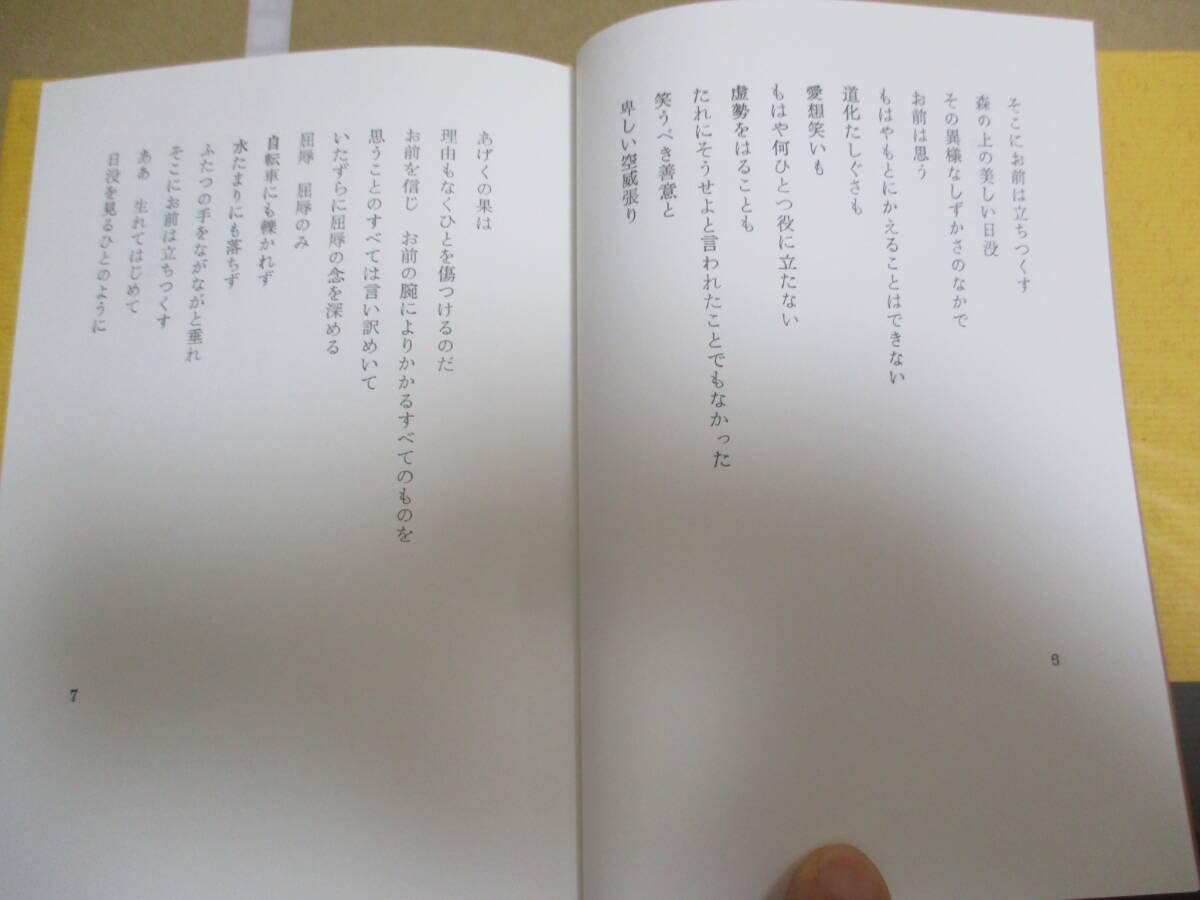 そこにお前は立ちつくす
森の上の美しい日没
その異様なしずかさのなかで
お前は思う
もはやもとにかえることはできない
道化たしぐさも
愛想笑いも
もはや何ひとつ役に立たない
虚勢をはることも
たれにそうせよと言われたことでもなかった
笑うべき善意と
卑しい空威張り
6
あげくの果は
理由もなくひとを傷つけるのだ
お前を信じ　お前の腕によりかかるすべてのものを
思うことのすべては言い訳めいて
いたずらに屈辱の念を深める
屈辱　屈辱のみ
自転車にも轢かれず
水たまりにも落ちず
ふたつの手をながながと垂れ
そこにお前は立ちつくす
ああ　生れてはじめて
日没を見るひとのように
7